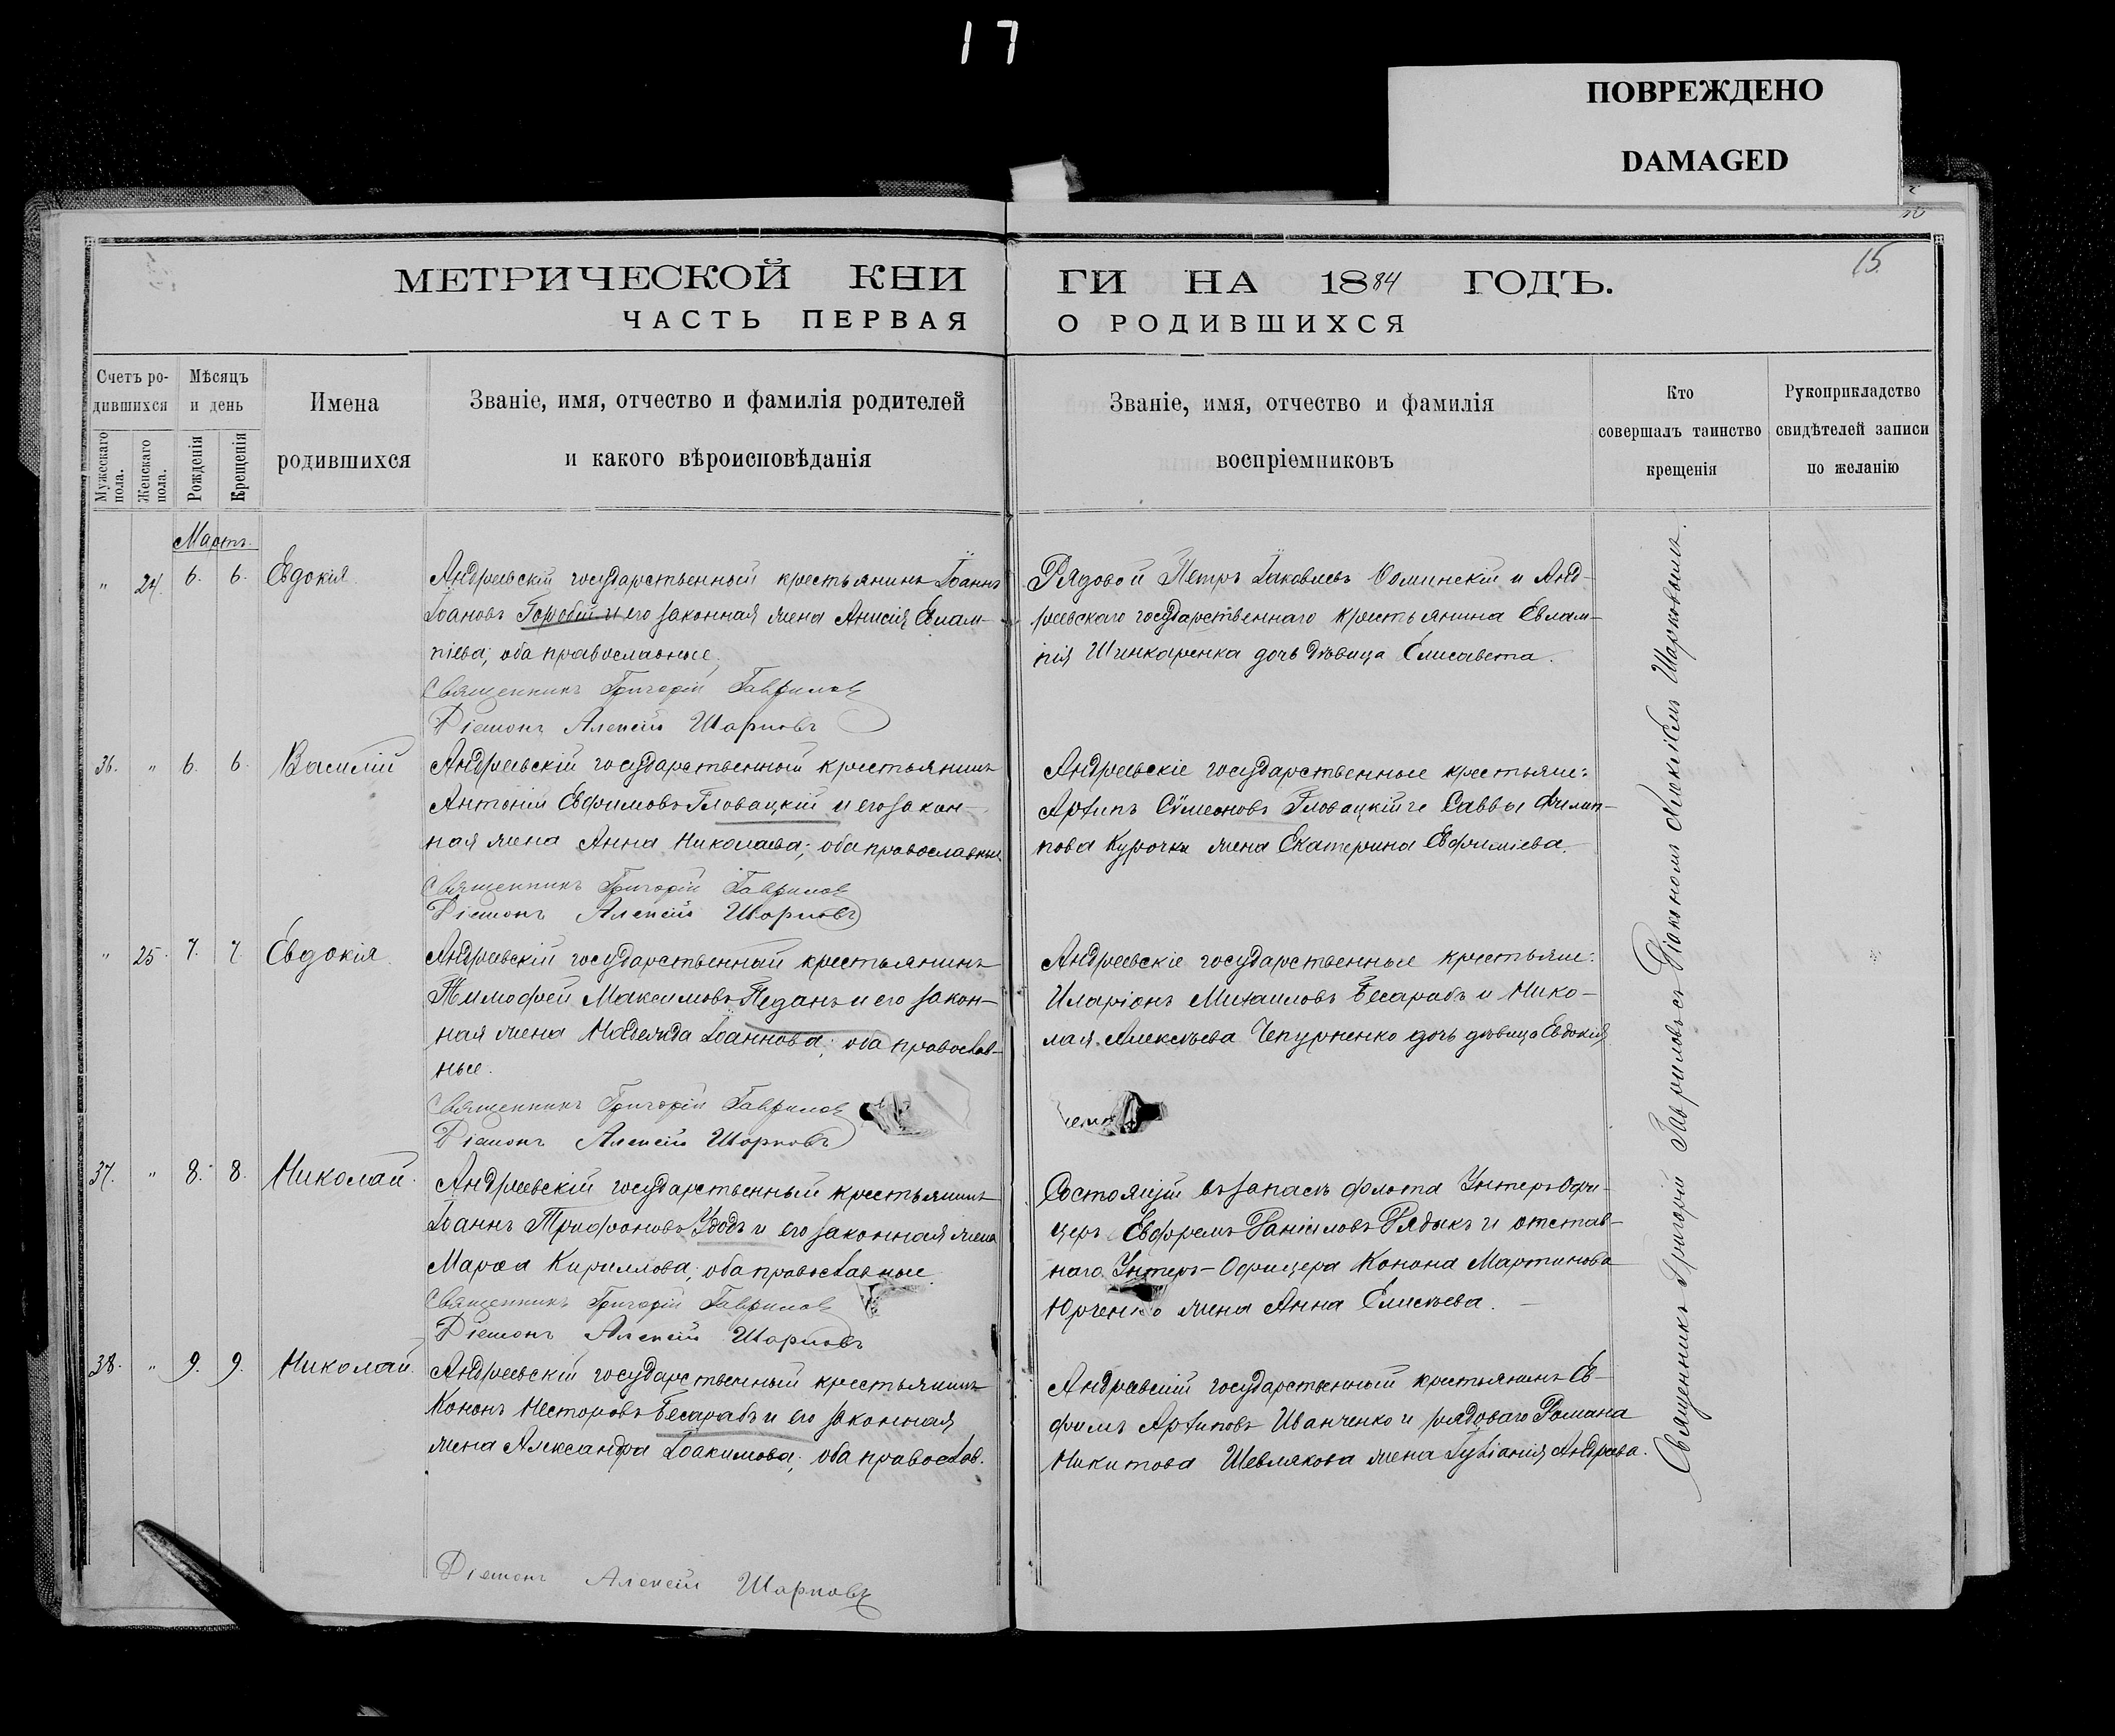 17
ПОВРЕЖДЕНО
DAMAGED
15.
МЕТРИЧЕСКОЙ КНИ ГИ НА 1884 ГОДЪ.
ЧАСТЬ ПЕРВАЯ О РОДИВШИХСЯ
Счетъ ро-
дившихся
Мужескаго пола.
Женскаго пола.
Мѣсяцъ
и день
Рожденія
Крещенія
Имена
родившихся
Званіе, имя, отчество и фамилія родителей
и какого вѣроисповѣданія
Званіе, имя, отчество и фамилія
воспріемниковъ
Кто
совершалъ таинство
крещенія
Рукоприкладство
свидѣтелей записи
по желанію
Мартъ.
" 24. 6. 6. Евдокія.
Андреевскій государственный крестьянинъ Іоаннъ
Іоановъ Горобій и его законная жена Анисія Евлам-
піева; оба православные.
Священникъ Григорій Гавриловъ
Діаконъ Алексій Шарковъ
Рядовой Петръ Іаковлевъ Фоминскій и Анд-
реевскаго государственнаго крестьянина Евлам-
пія Шинкаренка дочь дѣвица Елисавета.
36. " 6. 6. Василій
Андреевскій государственный крестьянинъ
Антоній Евфимовъ Гловацкій и его закон-
ная жена Анна Николаева; оба православные
Священникъ Григорій Гавриловъ
Діаконъ Алексій Шарковъ
Андреевскіе государственные крестьяне:
Архипъ Сѵмеоновъ Гловацкій и Саввы Филип-
пова Курочки жена Екатерина Евфиміева.
" 25. 7. 7. Евдокія.
Андреевскій государственный крестьянинъ
Тимофей Максимовъ Педанъ и его закон-
ная жена Надежда Іоаннова; оба православ-
ные.
Священникъ Григорій Гавриловъ
Діаконъ Алексій Шарковъ
Андреевскіе государственные крестьяне:
Иларіонъ Михаиловъ Бесарабъ и Нико-
лая Алексѣева Чепурненко дочь дѣвица Евдокія
37. " 8. 8. Николай.
Андреевскій государственный крестьянинъ
Іоаннъ Трифоновъ Удодъ и его законная жена
Марѳа Кириллова; оба православные.
Священникъ Григорій Гавриловъ
Діаконъ Алексій Шарковъ
Состоящій въ запасѣ флота Унтеръ Офи-
церъ Евфремъ Даніиловъ Рядыкъ и отстав-
наго Унтеръ-Офицера Конона Мартинова
Юрченко жена Анна Елисѣева.
38. " 9. 9. Николай.
Андреевскій государственный крестьянинъ
Кононъ Несторовъ Бесарабъ и его законная
жена Александра Іоакимова; оба православ.
Діаконъ Алексій Шарковъ
Андреевскій государственный крестьянинъ Ев-
фимъ Архиповъ Иванченко и рядоваго Романа
Никитова Шевлякова жена Іуліанія Андреева.
Священникъ Григорій Гавриловъ съ Діакономъ Алексіемъ Шарковымъ.